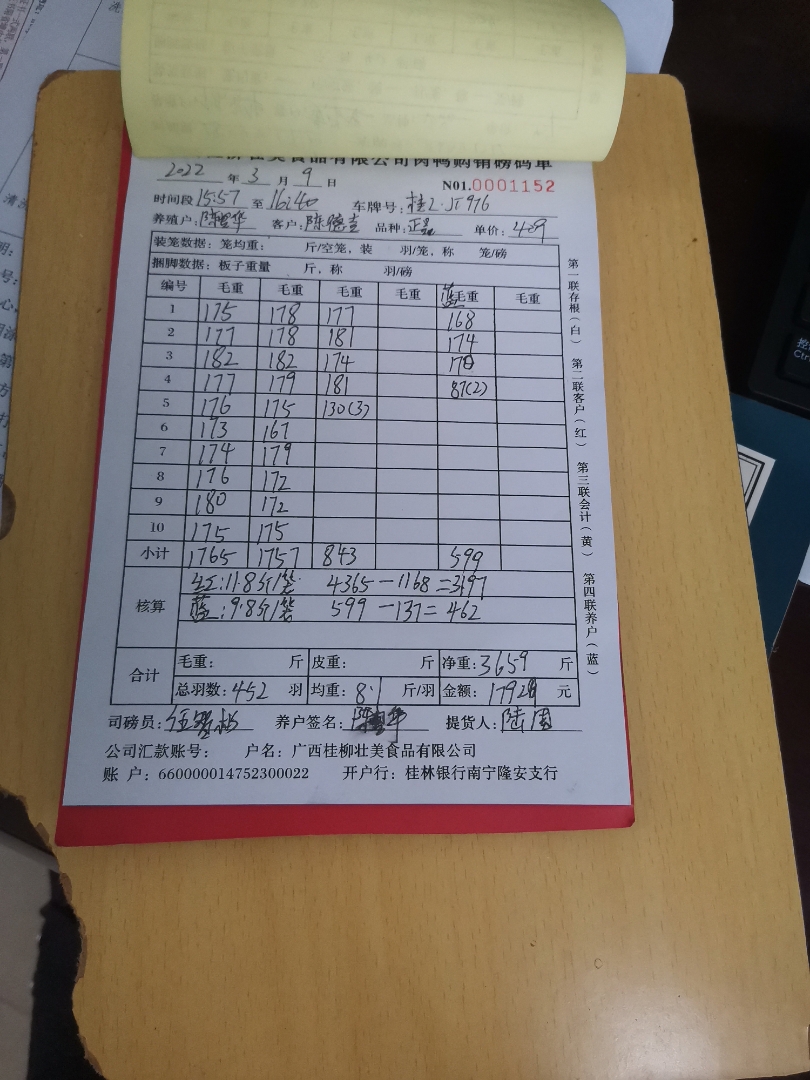 壮美食品有限公司肉鸭购销磅码单
2022 年 3 月 9 日 N01.0001152
时间段 15:57 至 16:40 车牌号: 桂L·JT976
养殖户: 客户: 陈德 品种: 正 单价: 4.9
装笼数据: 笼均重: 斤/空笼, 装 羽/笼, 称 笼/磅
捆脚数据: 板子重量 斤, 称 羽/磅
编号 毛重 毛重 毛重 毛重 蓝毛重 毛重
1 175 178 177 168
2 177 178 181 174
3 182 182 174 170
4 177 179 181 87(2)
5 176 175 130(3)
6 173 167
7 174 179
8 176 172
9 180 172
10 175 175
小计 1765 1757 843 599
核算 红:11.8斤/笼 4365-1168=3197
蓝:9.8斤/笼 599-137=462
合计 毛重: 斤 皮重: 斤 净重: 3659 斤
总羽数: 452 羽 均重: 8.1 斤/羽 金额: 元
司磅员: 养户签名: 提货人: 陆
公司汇款账号: 户名: 广西桂柳壮美食品有限公司
账 户: 660000014752300022 开户行: 桂林银行南宁隆安支行
第一联存根(白) 第二联客户(红) 第三联会计(黄) 第四联养户(蓝)